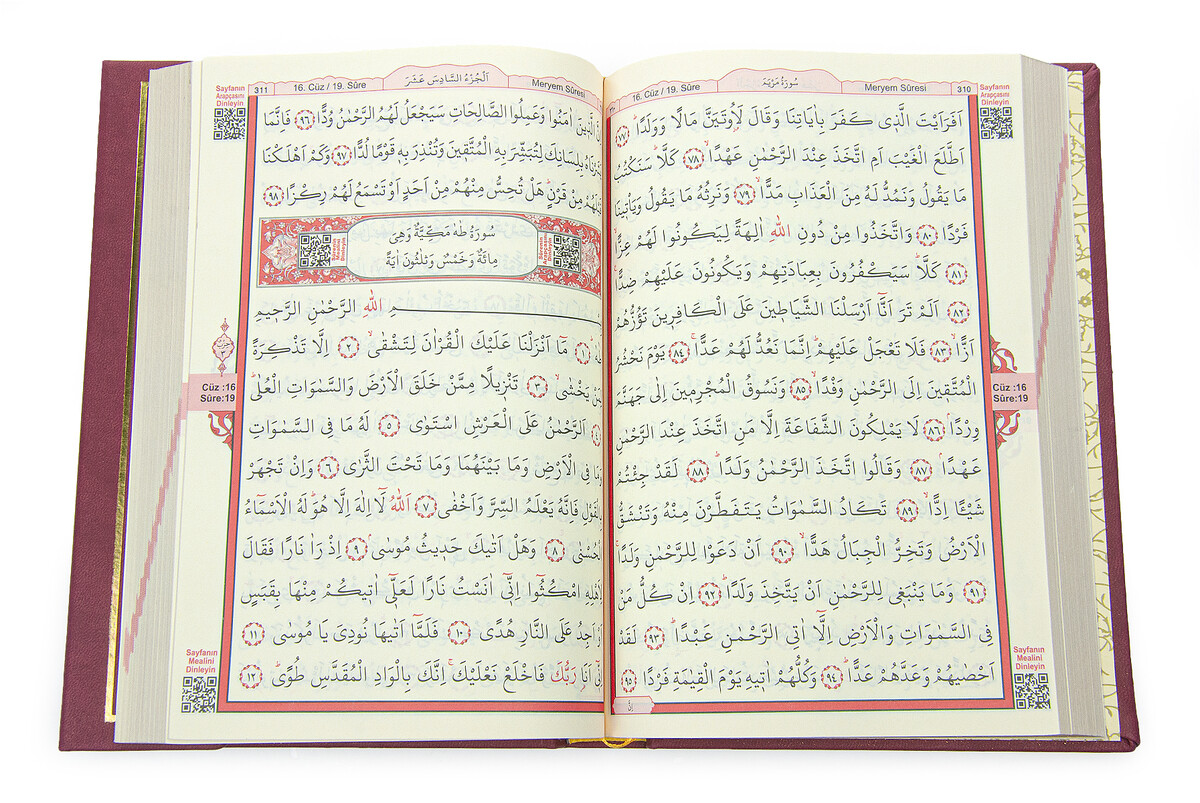 سُورَةُ مَرْيَمَ
16. Cüz / 19. Sûre
Meryem Sûresi
310
Sayfanın
Arapçasını
Dinleyin
اَفَرَاَيْتَ الَّذٖى كَفَرَ بِاٰيَاتِنَا وَقَالَ لَاُوتَيَنَّ مَالًا وَوَلَدًاؕ ﴿٧٧﴾
اَطَّلَعَ الْغَيْبَ اَمِ اتَّخَذَ عِنْدَ الرَّحْمٰنِ عَهْدًاۙ ﴿٧٨﴾ كَلَّاؕ سَنَكْتُبُ
مَا يَقُولُ وَنَمُدُّ لَهُ مِنَ الْعَذَابِ مَدًّاۙ ﴿٧٩﴾ وَنَرِثُهُ مَا يَقُولُ وَيَأْتٖينَا
فَرْدًا ﴿٨٠﴾ وَاتَّخَذُوا مِنْ دُونِ اللّٰهِ اٰلِهَةً لِيَكُونُوا لَهُمْ عِزًّاۙ
﴿٨١﴾ كَلَّاؕ سَيَكْفُرُونَ بِعِبَادَتِهِمْ وَيَكُونُونَ عَلَيْهِمْ ضِدًّا
﴿٨٢﴾ اَلَمْ تَرَ اَنَّٓا اَرْسَلْنَا الشَّيَاطٖينَ عَلَى الْكَافِرٖينَ تَؤُزُّهُمْ
اَزًّاۙ ﴿٨٣﴾ فَلَا تَعْجَلْ عَلَيْهِمْؕ اِنَّمَا نَعُدُّ لَهُمْ عَدًّاۚ ﴿٨٤﴾ يَوْمَ نَحْشُرُ
الْمُتَّقٖينَ اِلَى الرَّحْمٰنِ وَفْدًاۙ ﴿٨٥﴾ وَنَسُوقُ الْمُجْرِمٖينَ اِلٰى جَهَنَّمَ
وِرْدًاۘ ﴿٨٦﴾ لَا يَمْلِكُونَ الشَّفَاعَةَ اِلَّا مَنِ اتَّخَذَ عِنْدَ الرَّحْمٰنِ
عَهْدًاۘ ﴿٨٧﴾ وَقَالُوا اتَّخَذَ الرَّحْمٰنُ وَلَدًاؕ ﴿٨٨﴾ لَقَدْ جِئْتُمْ
شَيْـًٔا اِدًّاۙ ﴿٨٩﴾ تَكَادُ السَّمٰوَاتُ يَتَفَطَّرْنَ مِنْهُ وَتَنْشَقُّ
الْاَرْضُ وَتَخِرُّ الْجِبَالُ هَدًّاۙ ﴿٩٠﴾ اَنْ دَعَوْا لِلرَّحْمٰنِ وَلَدًاۚ
﴿٩١﴾ وَمَا يَنْبَغٖى لِلرَّحْمٰنِ اَنْ يَتَّخِذَ وَلَدًاؕ ﴿٩٢﴾ اِنْ كُلُّ مَنْ
فِى السَّمٰوَاتِ وَالْاَرْضِ اِلَّٓا اٰتِى الرَّحْمٰنِ عَبْدًاؕ ﴿٩٣﴾ لَقَدْ
اَحْصٰيهُمْ وَعَدَّهُمْ عَدًّاؕ ﴿٩٤﴾ وَكُلُّهُمْ اٰتٖيهِ يَوْمَ الْقِيٰمَةِ فَرْدًا ﴿٩٥﴾
Cüz :16
Sûre:19
Sayfanın
Mealini
Dinleyin
311
16. Cüz / 19. Sûre
اَلْجُزْءُ السَّادِسَ عَشَرَ
Meryem Sûresi
Sayfanın
Arapçasını
Dinleyin
اِنَّ الَّذٖينَ اٰمَنُوا وَعَمِلُوا الصَّالِحَاتِ سَيَجْعَلُ لَهُمُ الرَّحْمٰنُ وُدًّا ﴿٩٦﴾ فَاِنَّمَا
يَسَّرْنَاهُ بِلِسَانِكَ لِتُبَشِّرَ بِهِ الْمُتَّقٖينَ وَتُنْذِرَ بِهٖ قَوْمًا لُدًّا ﴿٩٧﴾ وَكَمْ اَهْلَكْنَا
قَبْلَهُمْ مِنْ قَرْنٍؕ هَلْ تُحِسُّ مِنْهُمْ مِنْ اَحَدٍ اَوْ تَسْمَعُ لَهُمْ رِكْزًا ﴿٩٨﴾
سُورَةُ طٰهٰ مَكِّيَّةٌ وَهِىَ
مِائَةٌ وَخَمْسٌ وَثَلٰثُونَ اٰيَةً
Sûrenin
Arapçasını
Dinleyin
Sûrenin
Mealini
Dinleyin
ـــمِ اللّٰهِ الرَّحْمٰنِ الرَّحٖيمِ
طٰهٰۚ ﴿١﴾ مَٓا اَنْزَلْنَا عَلَيْكَ الْقُرْاٰنَ لِتَشْقٰىۙ ﴿٢﴾ اِلَّا تَذْكِرَةً
لِمَنْ يَخْشٰىۙ ﴿٣﴾ تَنْزٖيلًا مِمَّنْ خَلَقَ الْاَرْضَ وَالسَّمٰوَاتِ الْعُلٰىؕ
﴿٤﴾ اَلرَّحْمٰنُ عَلَى الْعَرْشِ اسْتَوٰى ﴿٥﴾ لَهُ مَا فِى السَّمٰوَاتِ
وَمَا فِى الْاَرْضِ وَمَا بَيْنَهُمَا وَمَا تَحْتَ الثَّرٰى ﴿٦﴾ وَاِنْ تَجْهَرْ
بِالْقَوْلِ فَاِنَّهُ يَعْلَمُ السِّرَّ وَاَخْفٰى ﴿٧﴾ اَللّٰهُ لَٓا اِلٰهَ اِلَّا هُوَؕ لَهُ الْاَسْمَٓاءُ
الْحُسْنٰى ﴿٨﴾ وَهَلْ اَتٰيكَ حَدٖيثُ مُوسٰىۘ ﴿٩﴾ اِذْ رَاٰ نَارًا فَقَالَ
لِاَهْلِهِ امْكُثُٓوا اِنّٖٓى اٰنَسْتُ نَارًا لَعَلّٖٓى اٰتٖيكُمْ مِنْهَا بِقَبَسٍ
اَوْ اَجِدُ عَلَى النَّارِ هُدًى ﴿١٠﴾ فَلَمَّٓا اَتٰيهَا نُودِىَ يَا مُوسٰىؕ ﴿١١﴾
اِنّٖٓى اَنَا۬ رَبُّكَ فَاخْلَعْ نَعْلَيْكَۚ اِنَّكَ بِالْوَادِ الْمُقَدَّسِ طُوًىؕ ﴿١٢﴾
Cüz :16
Sûre:19
Sayfanın
Mealini
Dinleyin